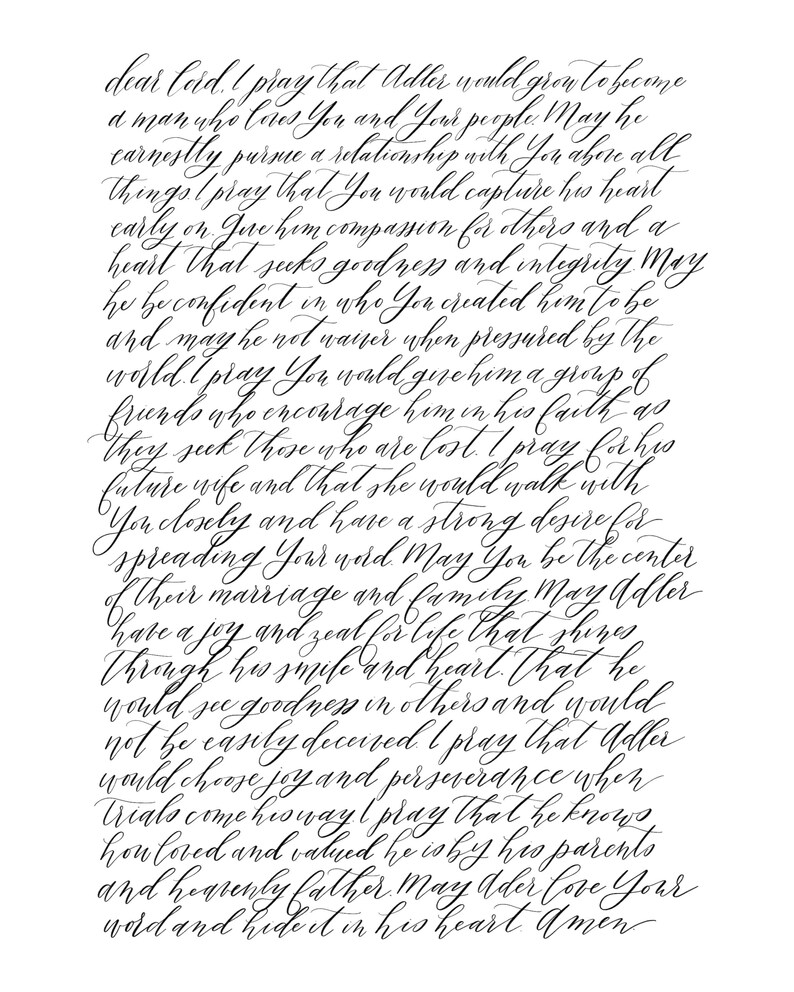 dear Lord, I pray that Adler would grow to become
a man who loves You and Your people. May he
earnestly pursue a relationship with You above all
things. I pray that You would capture his heart
early on. Give him compassion for others and a
heart that seeks goodness and integrity. May
he be confident in who You created him to be
and may he not waiver when pressured by the
world. I pray You would give him a group of
friends who encourage him in his faith as
they seek those who are lost. I pray for his
future wife and that she would walk with
You closely and have a strong desire for
spreading Your word. May You be the center
of their marriage and family. May Adler
have a joy and zeal for life that shines
through his smile and heart. That he
would see goodness in others and would
not be easily deceived. I pray that Adler
would choose joy and perseverance when
trials come his way. I pray that he knows
how loved and valued he is by his parents
and heavenly father. May Ader love Your
word and hide it in his heart. Amen.